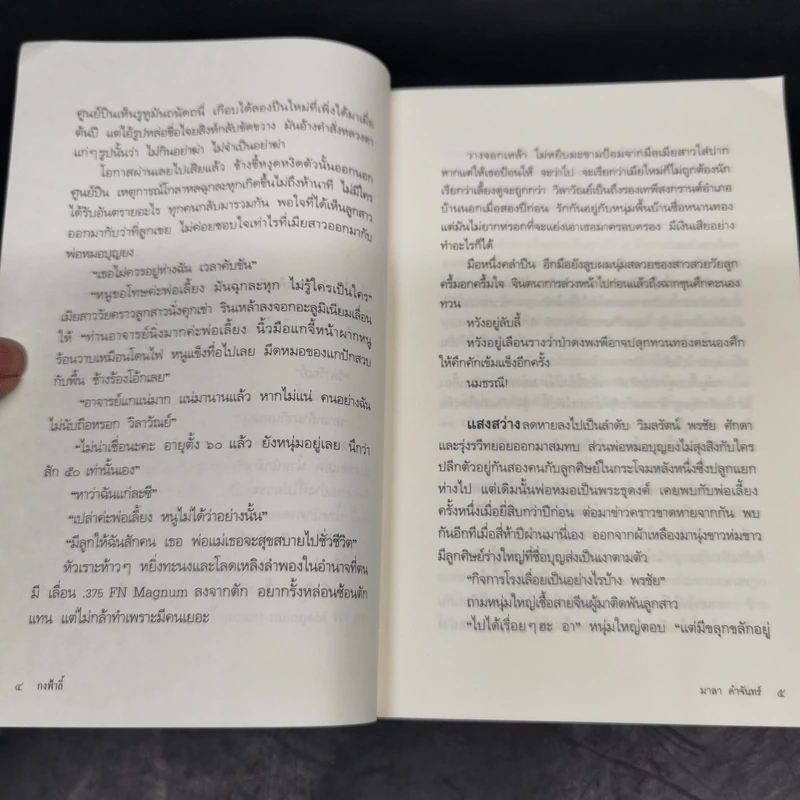 ศูนย์ปืนเห็นรูหูมันถนัดถนี่ เกือบได้ลองปืนใหม่ที่เพิ่งได้มาเมื่อ
ต้นปี แต่ไอ้รูปหล่อชื่อไจยสิงห์กลับขัดขวาง มันอ้างคำสั่งหลวงตา
แก่ๆรูปนั้นว่า ไม่กินอย่าฆ่า ไม่จำเป็นอย่าฆ่า
โอกาสผ่านเลยไปเสียแล้ว ช้างขี้หงุดหงิดตัวนั้นออกนอก
ศูนย์ปืน เหตุการณ์โกลาหลฉุกละหุกเกิดขึ้นไม่ถึงห้านาที ไม่มีใคร
ได้รับอันตรายอะไร ทุกคนกลับมารวมกัน พอใจที่ได้เห็นลูกสาว
ออกมากับว่าที่ลูกเขย ไม่ค่อยชอบใจเท่าไรที่เมียสาวออกมากับ
พ่อหมอบุญยง
“เธอไม่ควรอยู่ห่างฉัน เวลาคับขัน”
“หนูขอโทษค่ะพ่อเลี้ยง มันฉุกละหุก ไม่รู้ใครเป็นใคร”
เมียสาววัยคราวลูกสาวนั่งคุกเข่า รินเหล้าลงจอกอะลูมิเนียมเลื่อน
ให้ “ท่านอาจารย์นิ่งมากค่ะพ่อเลี้ยง นิ้วมือแกจี้หน้าผากหนู
ร้อนวาบเหมือนโดนไฟ หนูแข็งทื่อไปเลย มีดหมอของแกปักสวบ
กับพื้น ช้างร้องโอ้กเลย”
“อาจารย์แกแน่มาก แน่มานานแล้ว หากไม่แน่ คนอย่างฉัน
ไม่นับถือหรอก วิลาวัณย์”
“ไม่น่าเชื่อนะคะ อายุตั้ง ๖๐ แล้ว ยังหนุ่มอยู่เลย นึกว่า
สัก ๕๐ เท่านั้นเอง”
“หาว่าฉันแก่ละซี”
“เปล่าค่ะพ่อเลี้ยง หนูไม่ได้ว่าอย่างนั้น”
“มีลูกให้ฉันสักคน เธอ พ่อแม่เธอจะสุขสบายไปชั่วชีวิต”
หัวเราะห้าวๆ หยิ่งทะนงและโลดเหลิงลำพองในอำนาจที่ตน
มี เลื่อน .375 FN Magnum ลงจากตัก อยากรั้งหล่อนซ้อนตัก
แทน แต่ไม่กล้าทำเพราะมีคนเยอะ
๔ กงฟ้าลี้
วางจอกเหล้า ไม่หยิบมะขามป้อมจากมือเมียสาวใส่ปาก
หากแต่ให้เธอป้อนให้ จะว่าไป จะเรียกว่าเมียใหม่ก็ไม่ถูกต้องนัก
เรียกว่าเลี้ยงดูจะถูกกว่า วิลาวัณย์เป็นถึงรองเทพีสงกรานต์อำเภอ
บ้านนอกเมื่อสองปีก่อน รักกันอยู่กับหนุ่มพื้นบ้านชื่อหนานทอง
แต่มันไม่ยากหรอกที่จะแย่งเอาเธอมาครอบครอง มีเงินเสียอย่าง
ทำอะไรก็ได้
มือหนึ่งคลำปืน อีกมือยังลูบผมนุ่มสลวยของสาวสวยวัยลูก
ครื้มอกครื้มใจ จินตนาการล่วงหน้าไปก่อนแล้วถึงฉากขุนศึกคะนอง
ทวน
หวังอยู่ลับลี้
หวังอยู่เลือนรางว่าป่าดงพงพีอาจปลุกทวนทองคะนองศึก
ให้คึกคักเข้มแข็งอีกครั้ง
นมธรณี!
แสงสว่างลดหายลงไปเป็นลำดับ วิมลรัตน์ พรชัย ศักดา
และรุ่งรวีทยอยออกมาสมทบ ส่วนพ่อหมอบุญยงไม่สุงสิงกับใคร
ปลีกตัวอยู่กันสองคนกับลูกศิษย์ในกระโจมหลังหนึ่งซึ่งปลูกแยก
ห่างไป แต่เดิมนั้นพ่อหมอเป็นพระธุดงค์ เคยพบกับพ่อเลี้ยง
ครั้งหนึ่งเมื่อยี่สิบกว่าปีก่อน ต่อมาข่าวคราวขาดหายจากกัน พบ
กันอีกทีเมื่อสี่ห้าปีผ่านมานี่เอง ออกจากผ้าเหลืองมานุ่งขาวห่มขาว
มีลูกศิษย์ร่างใหญ่ที่ชื่อบุญส่งเป็นเงาตามตัว
“กิจการโรงเลื่อยเป็นอย่างไรบ้าง พรชัย”
ถามหนุ่มใหญ่เชื้อสายจีนผู้มาติดพันลูกสาว
“ไปได้เรื่อยๆฮะ อา” หนุ่มใหญ่ตอบ “แต่มีขลุกขลักอยู่
มาลา คำจันทร์ ๕